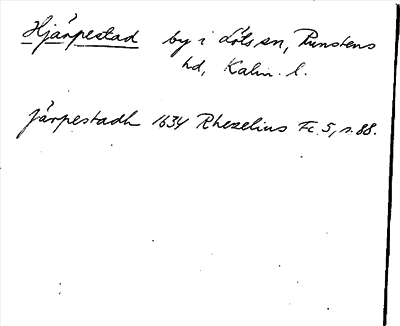 Hjärpestad by i Löts sn, Runstens
hd, Kalm. l.
Järpestadh 1634 Rhezelius Fc. 5, s. 88.